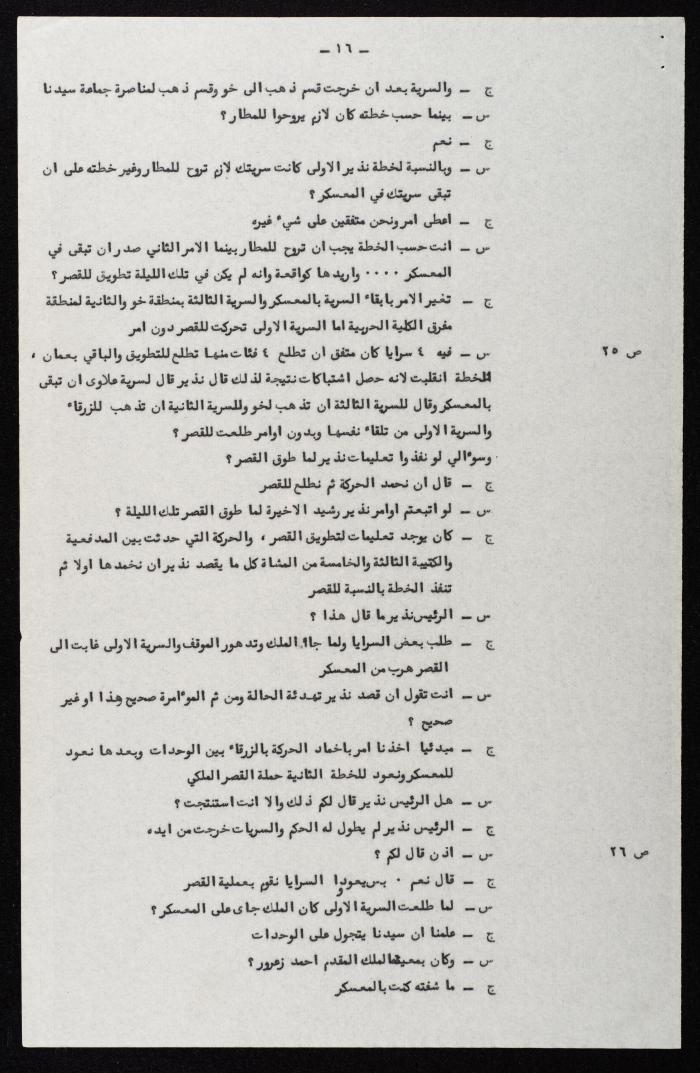 – ١٦ –
ج – والسرية بعد ان خرجت قسم ذهب الى خو وقسم ذهب لمناصرة جماعة سيدنا
س – بينما حسب خطته كان لازم يروحوا للمطار ؟
ج – نعم
س – وبالنسبة لخطة نذير الاولى كانت سريتك لازم تروح للمطار وغير خطته على ان
تبقى سريتك في المعسكر ؟
ج – اعطى امر ونحن متفقين على شيء غيره
س – انت حسب الخطة يجب ان تروح للمطار بينما الامر الثاني صدر ان تبقى في
المعسكر ٠٠٠٠ واريدها كواقعة وانه لم يكن في تلك الليلة تطويق للقصر ؟
ج – تغير الامر بايقاء السرية بالمعسكر والسرية الثالثة بمنطقة خو والثانية لمنطقة
مفرق الكلية الحربية اما السرية الاولى تحركت للقصر دون امر
ص ٢٥ س – فيه ٤ سرايا كان متفق ان تطلع ٤ فئات منها تطلع للتطويق والباقي بعمان ،
الخطة انقلبت لانه حصل اشتباكات نتيجة لذلك قال نذير قال لسرية علاوى ان تبقى
بالمعسكر وقال للسرية الثالثة ان تذهب لخو وللسرية الثانية ان تذهب للزرقاء
والسرية الاولى من تلقاء نفسها وبدون اوامر طلعت للقصر ؟
وسوءالي لو نفذوا تعليمات نذير لما طوق القصر ؟
ج – قال ان نحمد الحركة ثم نطلع للقصر
س – لو اتبعتم اوامر نذير رشيد الاخيرة لما طوق القصر تلك الليلة ؟
ج – كان يوجد تعليمات لتطويق القصر ، والحركة التي حدثت بين المدفعية
والكتيبة الثالثة والخامسة من المشاة كل ما يقصد نذير ان نخمدها اولا ثم
تنفذ الخطة بالنسبة للقصر
س – الرئيس نذير ما قال هذا ؟
ج – طلب بعض السرايا ولما جاء الملك وتدهور الموقف والسرية الاولى غابت الى
القصر هرب من المعسكر
س – انت تقول ان قصد نذير تهدئة الحالة ومن ثم الموءامرة صحيح هذا او غير
صحيح ؟
ج – مبدئيا اخذنا امر باخماد الحركة بالزرقاء بين الوحدات وبعدها نعود
للمعسكر ونعود للخطة الثانية حملة القصر الملكي
س – هل الرئيس نذير قال لكم ذلك والا انت استنتجت ؟
ج – الرئيس نذير لم يطول له الحكم والسريات خرجت من ايده
ص ٢٦ س – اذن قال لكم ؟
ج – قال نعم ٠ بس يعودوا السرايا نقوم بعملية القصر
س – لما طلعت السرية الاولى كان الملك جاى على المعسكر ؟
ج – علمنا ان سيدنا يتجول على الوحدات
س – وكان بمعية الملك المقدم احمد زعرور ؟
ج – ما شفته كنت بالمعسكر